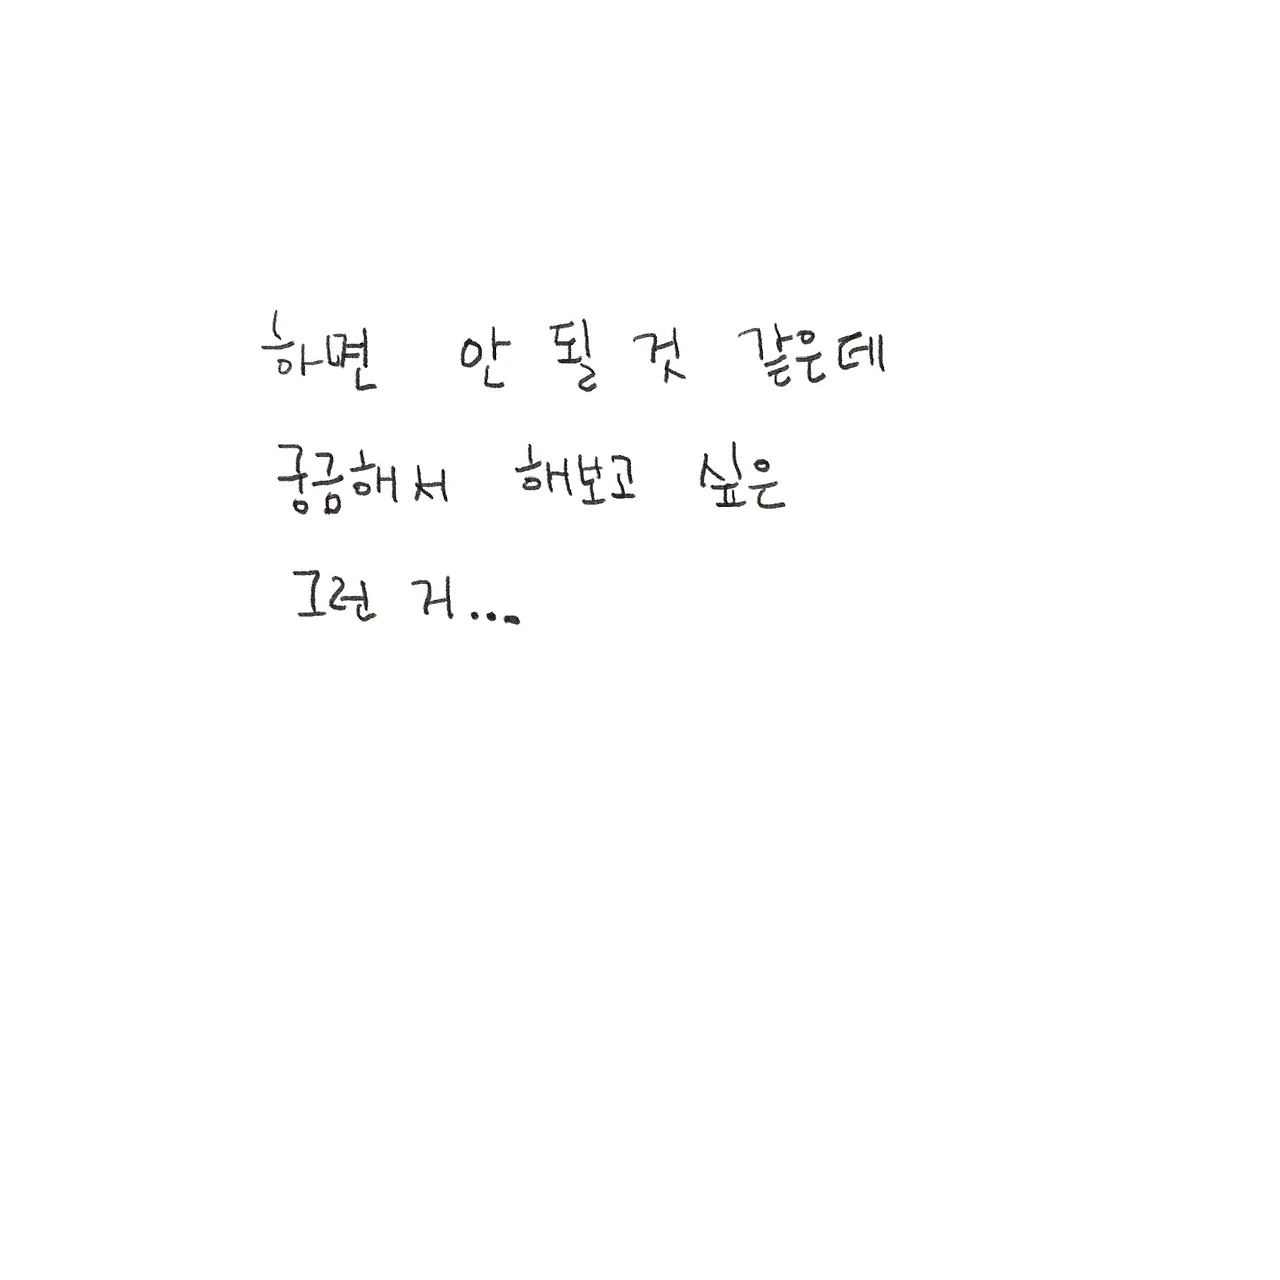 하면 안 될 것 같은데
궁금해서 해보고 싶은
그런 거...